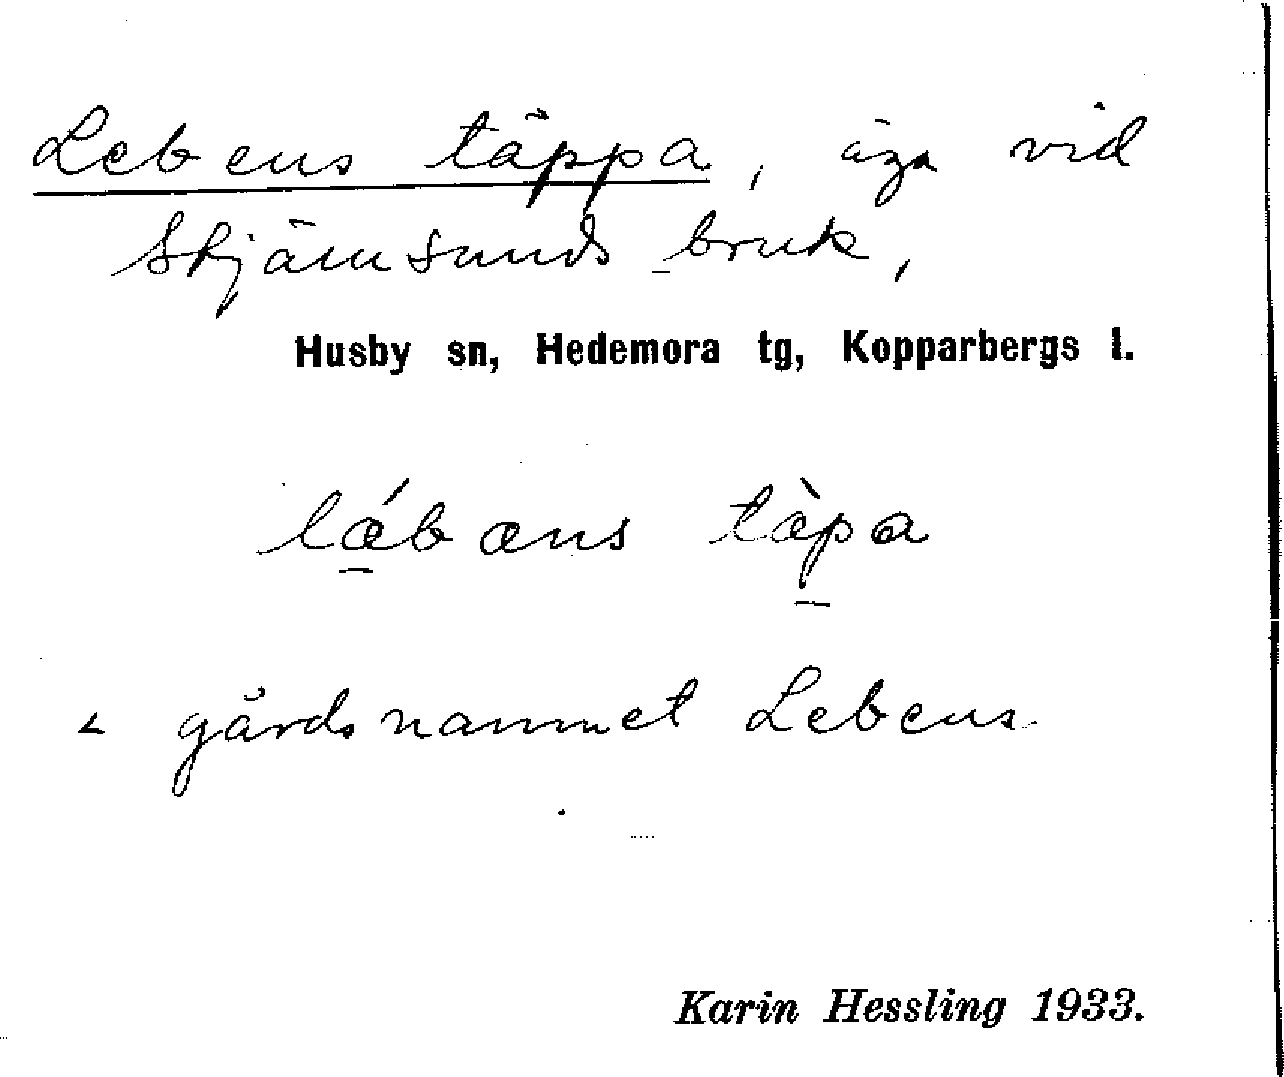 Lebens täppa, äga vid
Stjärnsunds bruk,
Husby sn, Hedemora tg, Kopparbergs l.
lǽbæns tæ̀pa
< gårdsnamnet Lebens.
Karin Hessling 1933.